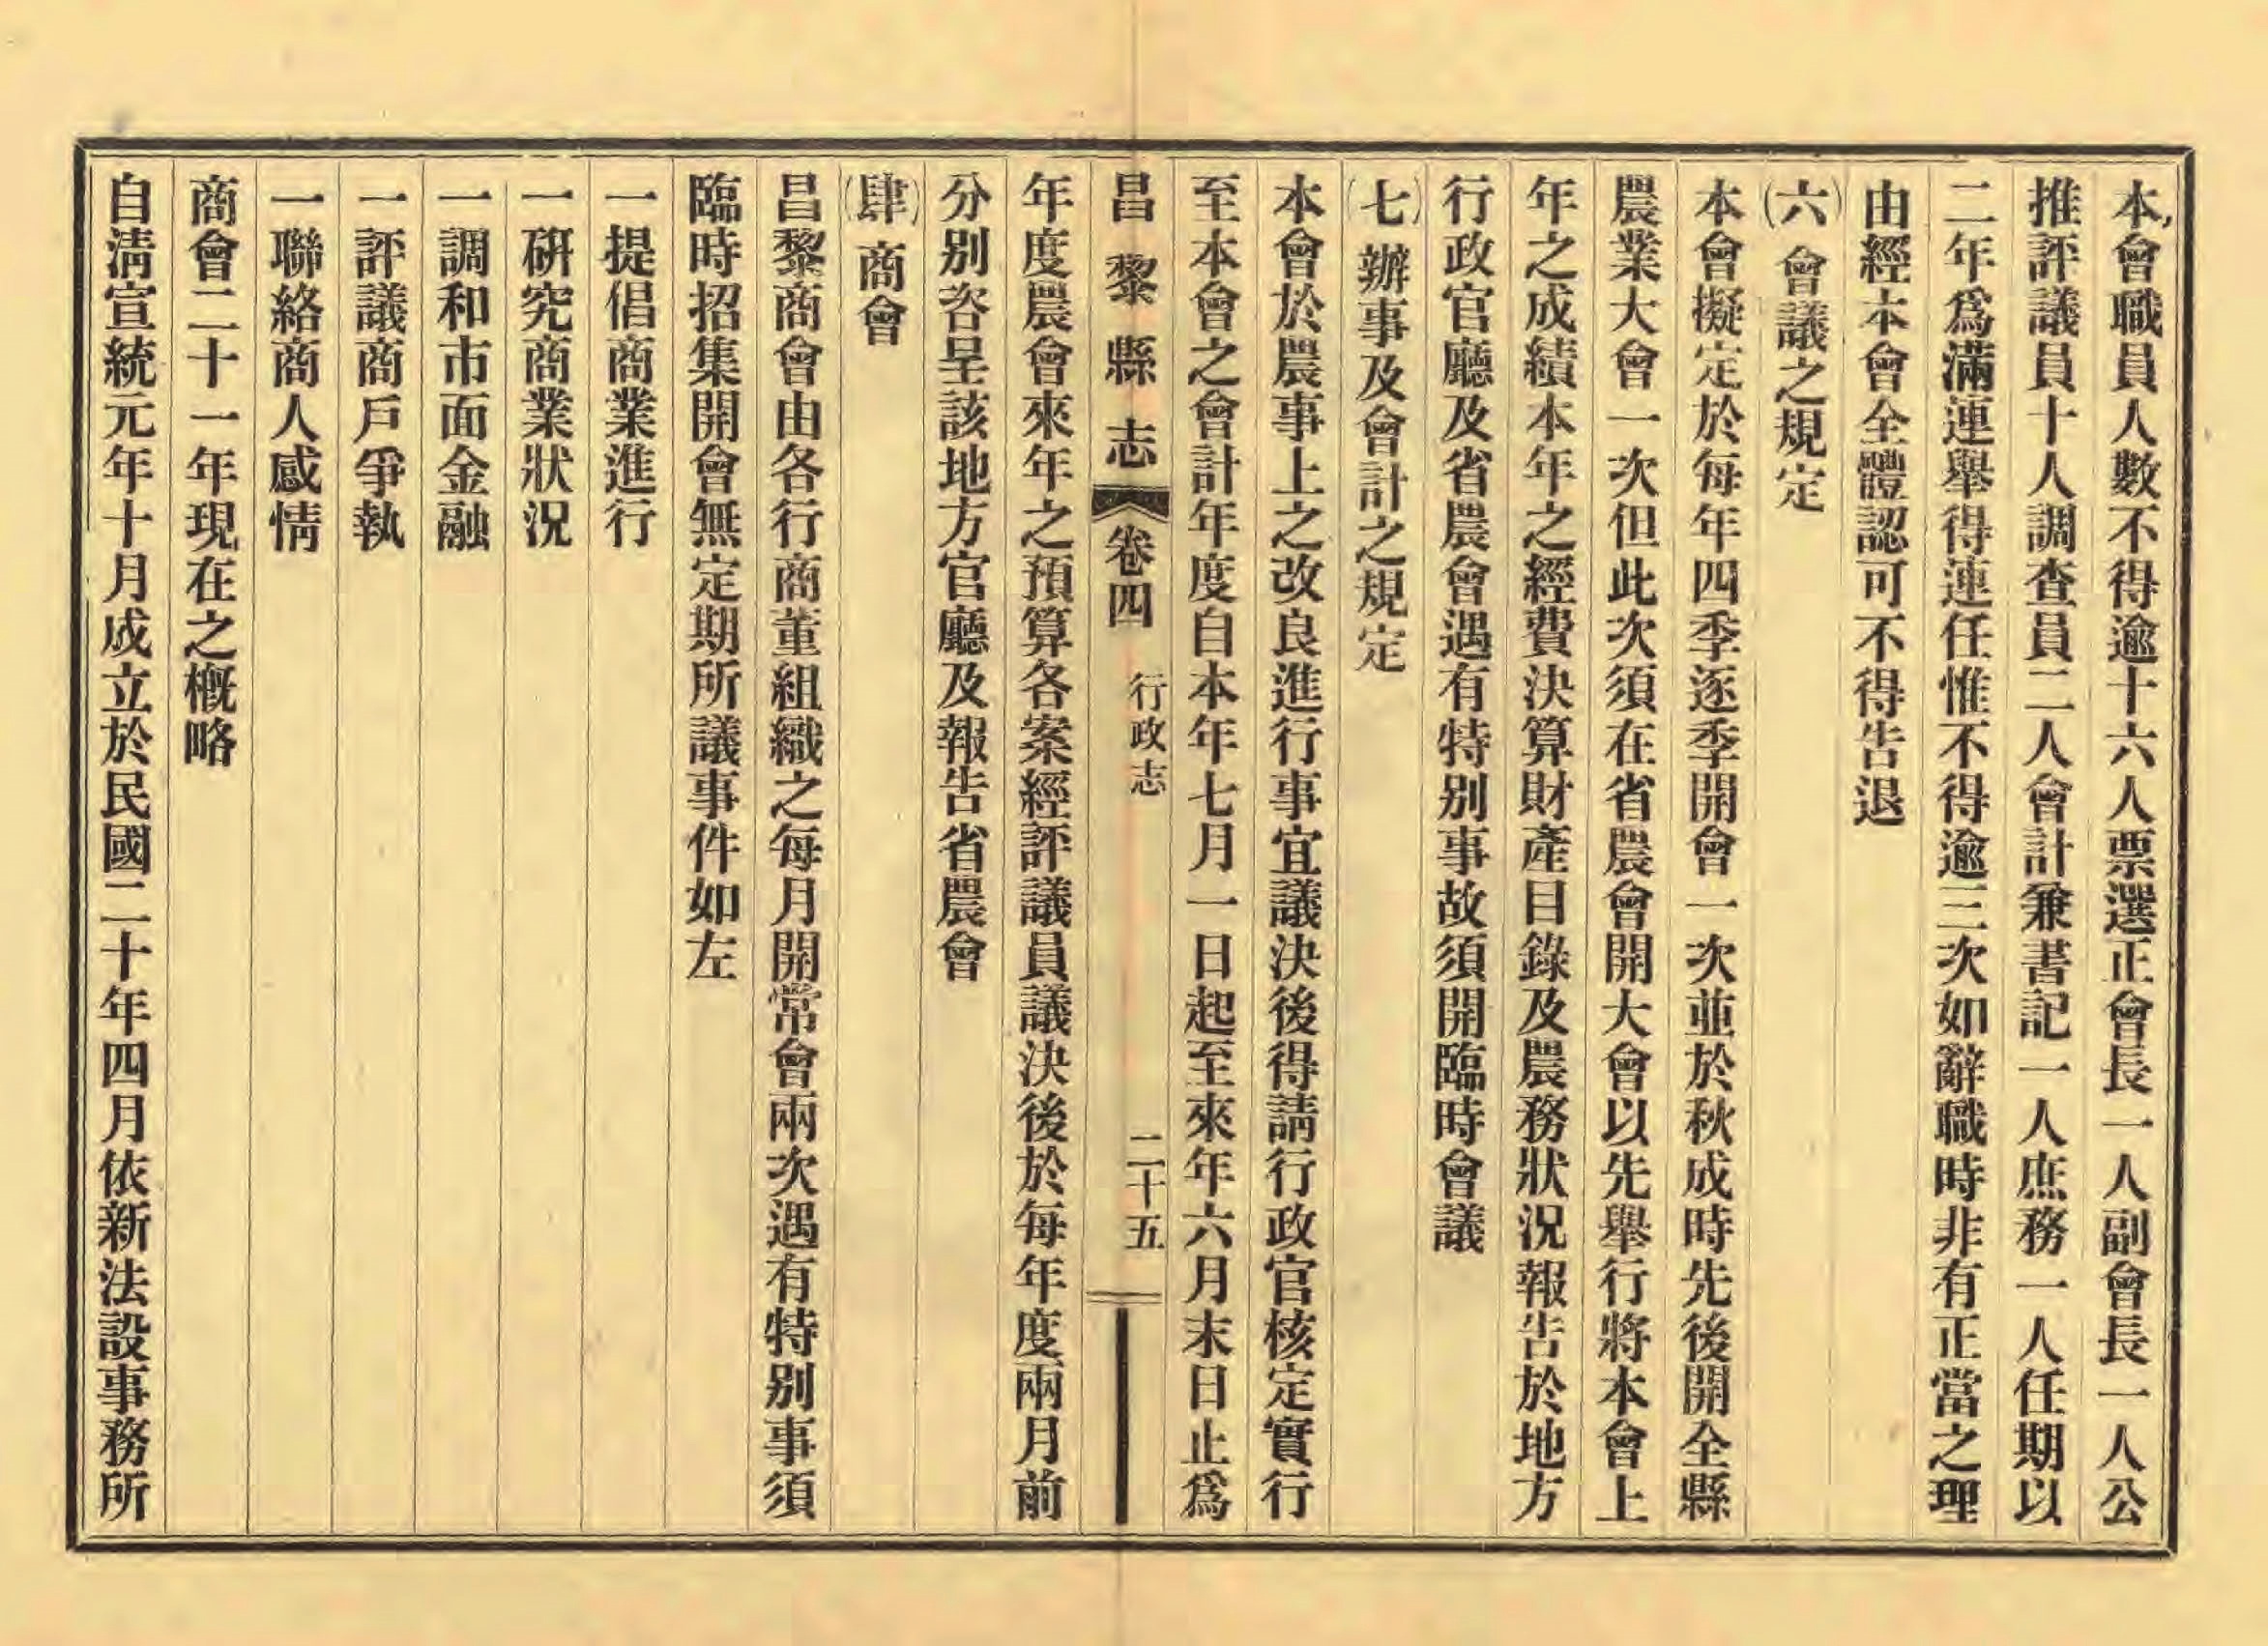 本會職員人數不得逾十六人票選正會長一人副會長一人公
推評議員十人調查員二人會計兼書記一人庶務一人任期以
二年爲滿連舉得連任惟不得逾三次如辭職時非有正當之理
由經本會全體認可不得告退
（六）會議之規定
本會擬定於每年四季逐季開會一次並於秋成時先後開全縣
農業大會一次但此次須在省農會開大會以先舉行將本會上
年之成績本年之經費決算財產目錄及農務狀況報告於地方
行政官廳及省農會遇有特别事故須開臨時會議
（七）辦事及會計之規定
本會於農事上之改良進行事宜議決後得請行政官核定實行
至本會之會計年度自本年七月一日起至來年六月末日止爲
昌黎縣志 卷四 行政志 二十五
年度農會來年之預算各案經評議員議決後於每年度兩月前
分别咨呈該地方官廳及報告省農會
（肆）商會
昌黎商會由各行商董組織之每月開常會兩次遇有特别事須
臨時招集開會無定期所議事件如左
一提倡商業進行
一研究商業狀況
一調和市面金融
一評議商戶爭執
一聯絡商人感情
商會二十一年現在之概略
自淸宣統元年十月成立於民國二十年四月依新法設事務所